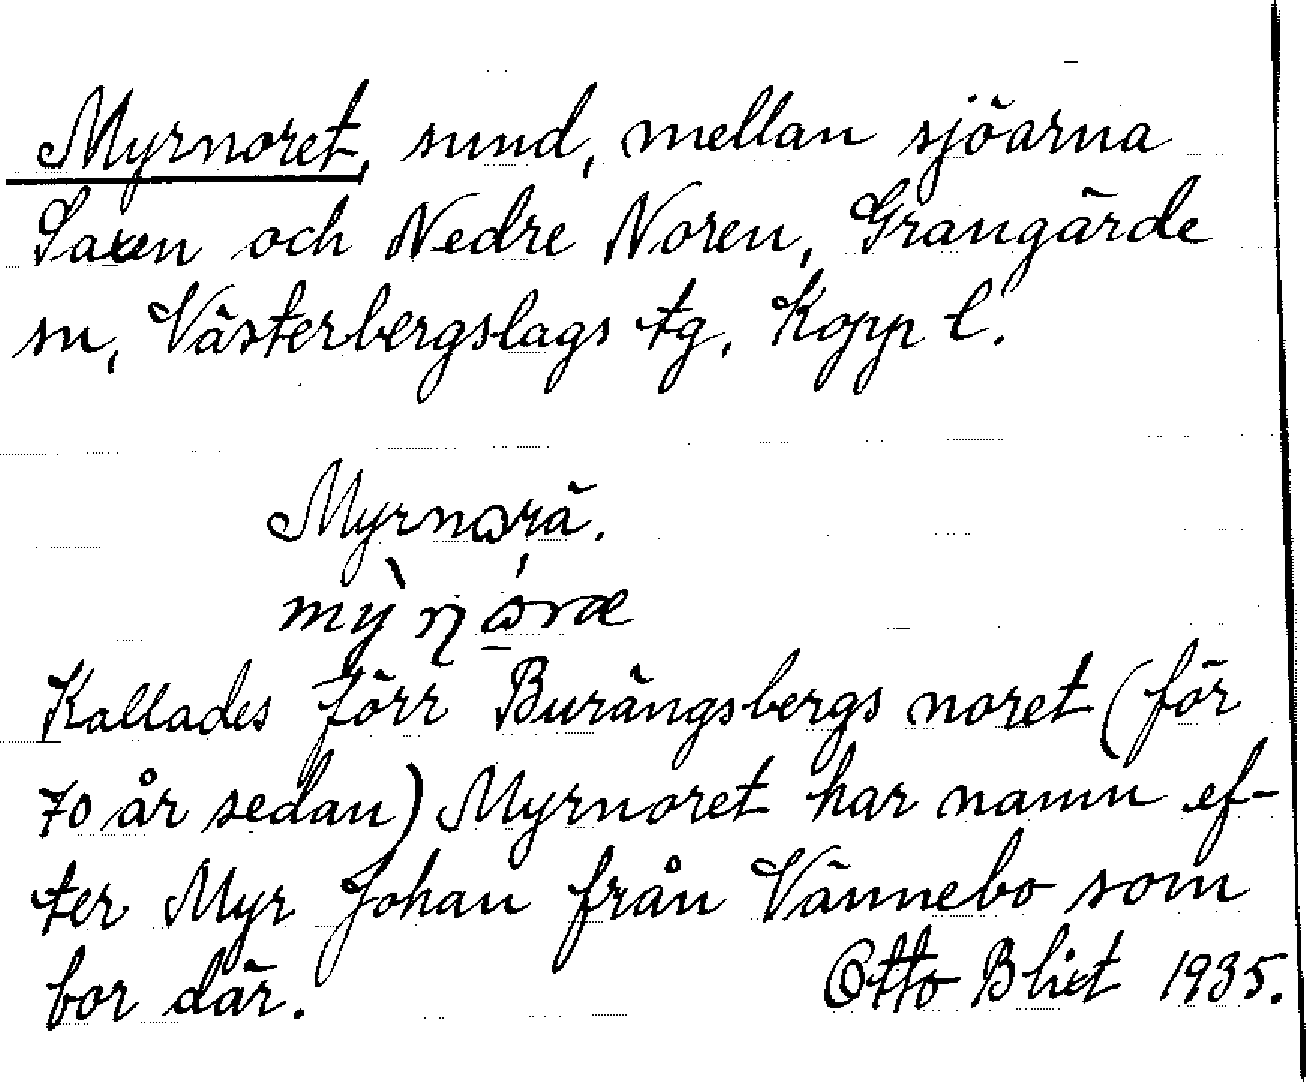 Myrnoret, sund, mellan sjöarna
Saxen och Nedre Noren, Grangärde
sn, Västerbergslags tg. Kopp l.
Myrnωrä.
Kallades förr Burängsbergs noret (för
70 år sedan) Myrnoret har namn ef-
ter Myr Johan från Vännebo som
bor där. Otto Blixt 1935.